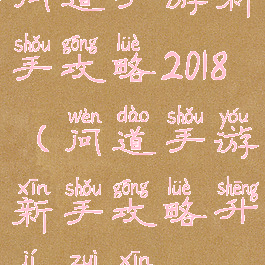 问道手游新
shǒu gōng lüè
手攻略2018
wèn dào shǒu yóu
(问道手游
xīn shǒu gōng lüè shēng
新手攻略升
jí zuì xīn